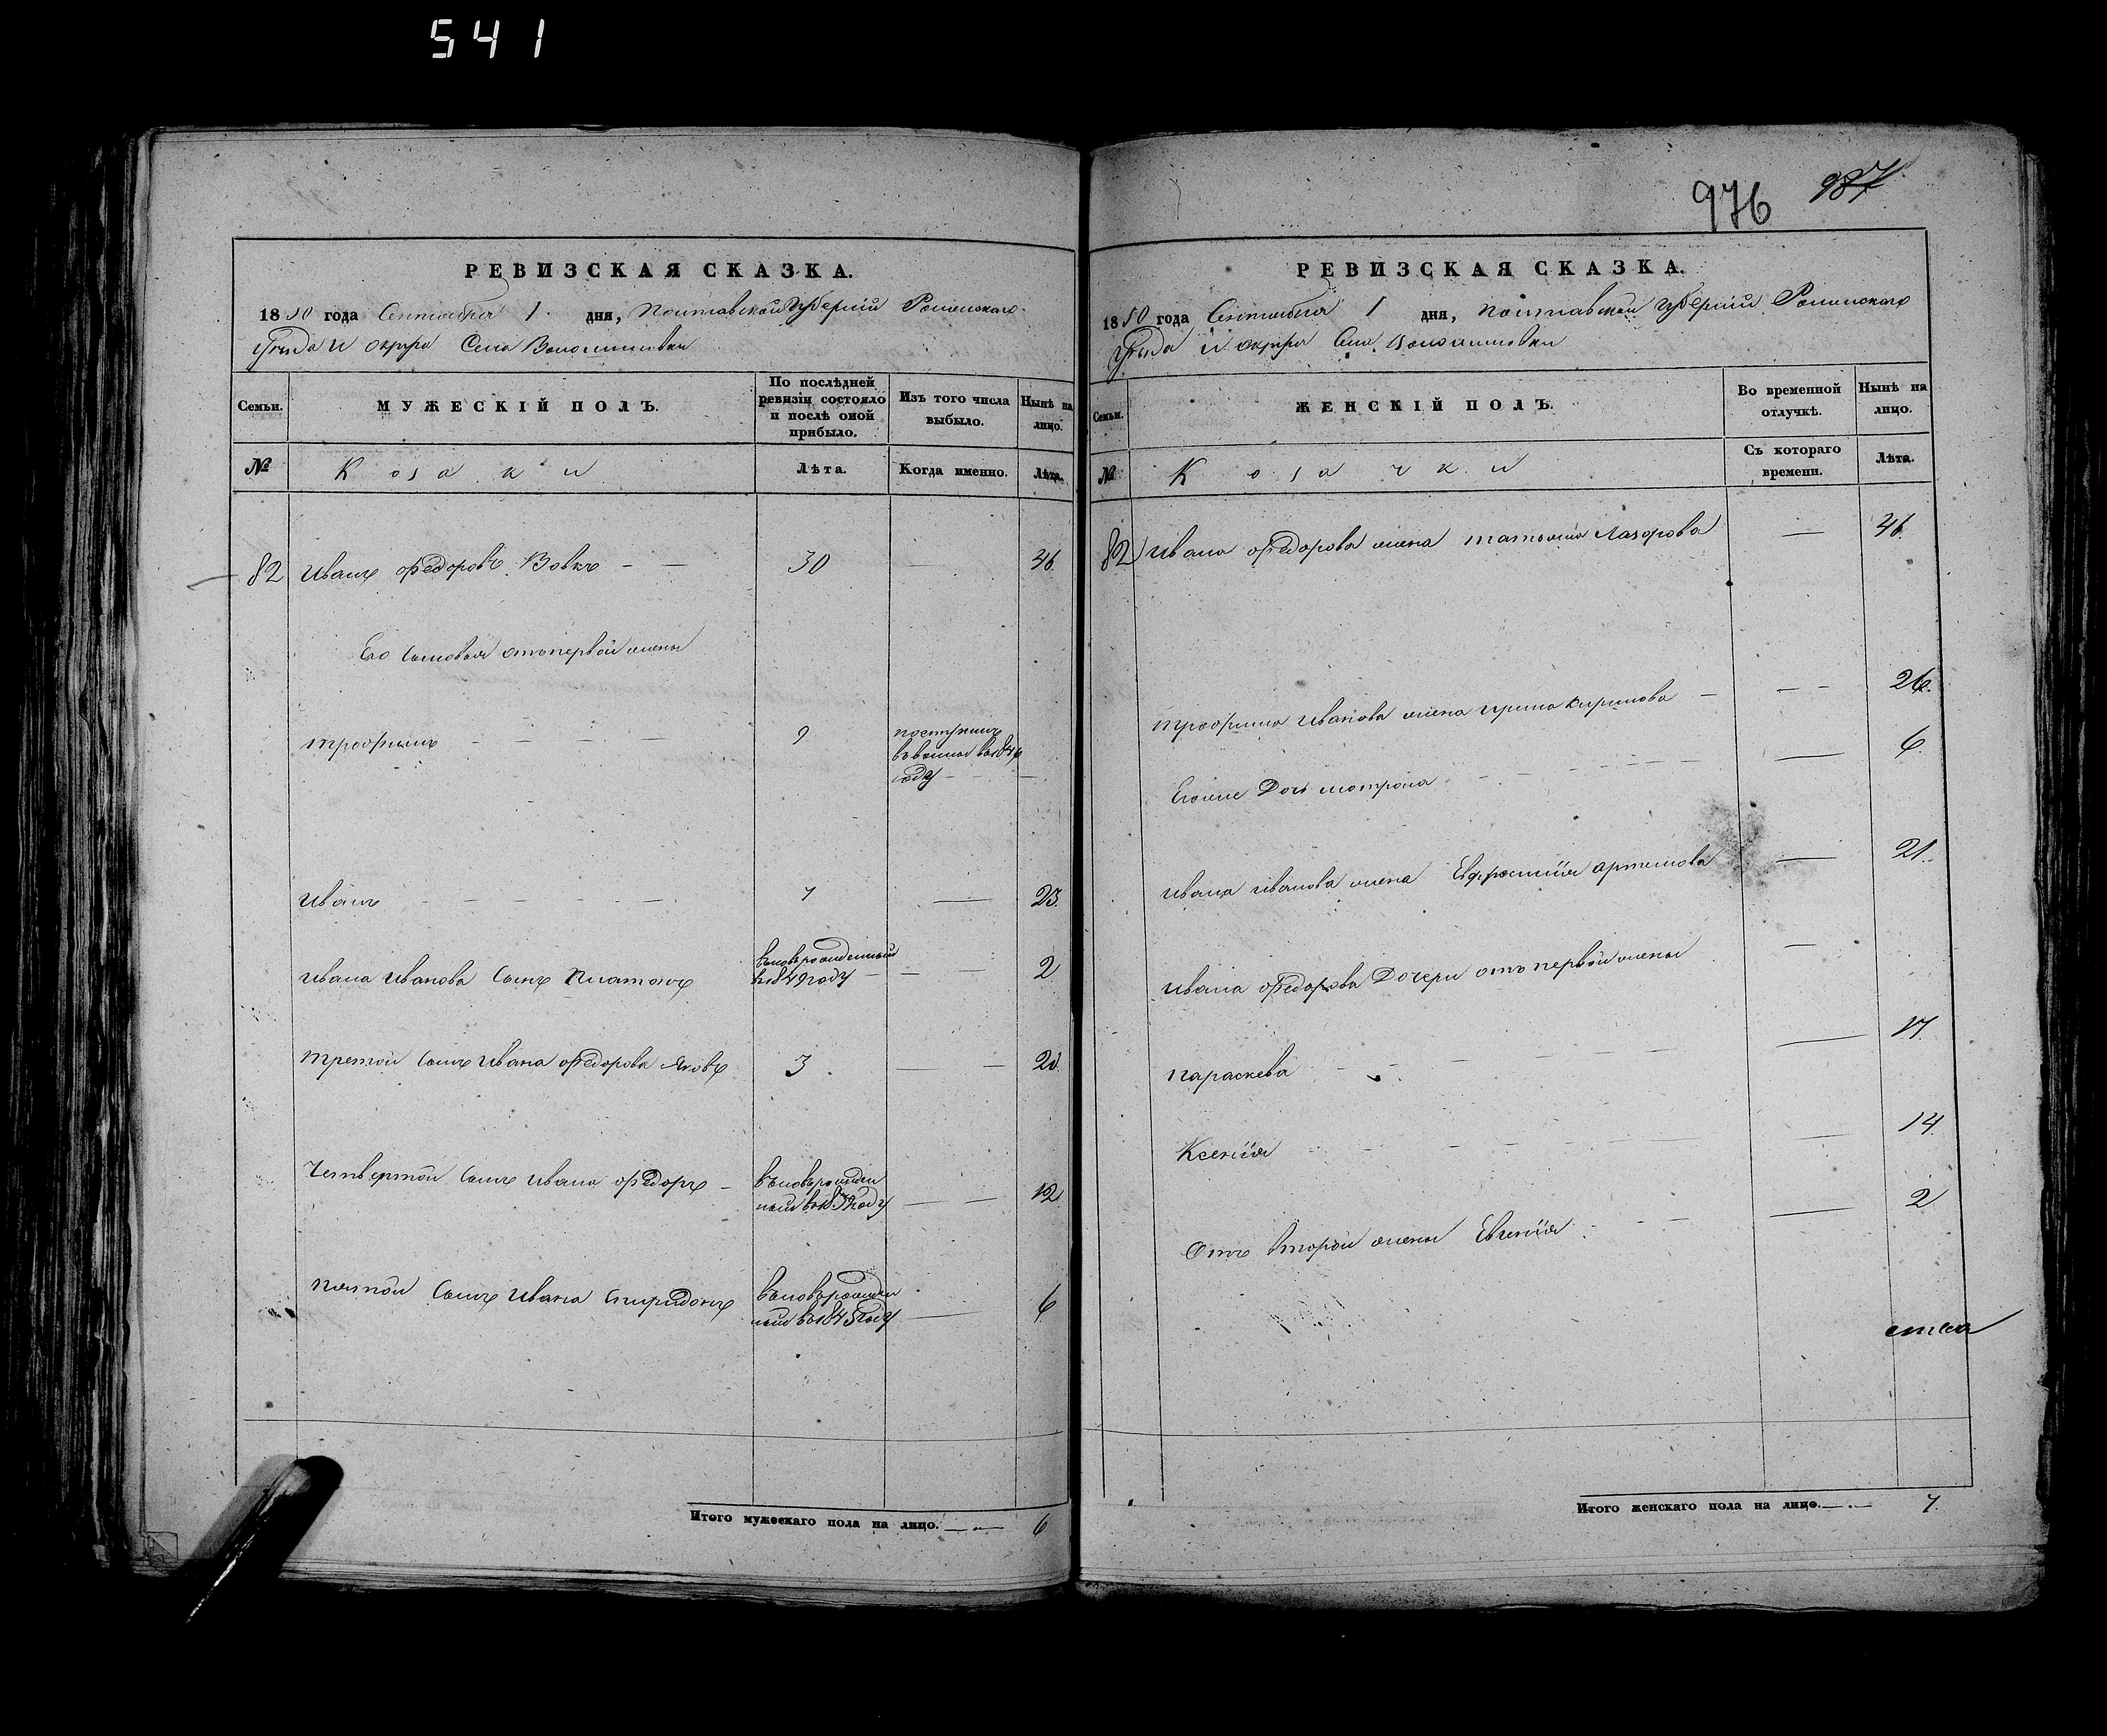 541
976 987
РЕВИЗСКАЯ СКАЗКА.
1850 года Сентября 1 дня, Полтавской Губерніи Роменского
Уезда и округа Села Волошиновки
Семьи.
МУЖЕСКІЙ ПОЛЪ.
По послѣдней ревизіи состояло и послѣ оной прибыло.
Изъ того числа выбыло.
Нынѣ на лицо.
№
Козаки
Лѣта.
Когда именно.
Лѣта.
82 Иванъ Федоровъ Вовкъ 30 46
Его сыновья отъ первой жены
Трофимъ 9 поступилъ
въ воины в 1846
году
Иванъ 7 23
Ивана Иванова сынъ Платонъ въновьрожденный
в 1849 году 2
Третой сынъ Ивана Федорова Яковъ 3 20
Четвертой сынъ Ивана Федоръ въновьрожден
ный в 1839 году 12
Пятой сынъ Ивана Спиридонъ въновьрожден
ный в 1845 году 6
Итого мужескаго пола на лицо. 6
РЕВИЗСКАЯ СКАЗКА.
1850 года Сентября 1 дня, Полтавской Губерніи Роменского
Уезда и округа Села Волошиновки
Семьи.
ЖЕНСКІЙ ПОЛЪ.
Во временной отлучкѣ.
Нынѣ на лицо.
№
Козачки
Съ котораго времени.
Лѣта.
82 Ивана Федорова жена Татьяна Лазорова 46
Трофима Иванова жена Ирина Кирилова 26
Егоже дочь Мотрона 6
Ивана Иванова жена Евфросинія Артемова 21
Ивана Федорова дочери отъ первой жены
Параскева 17
Ксенія 14
Отъ второй жены Евгенія 2
Итого женскаго пола на лицо. 7